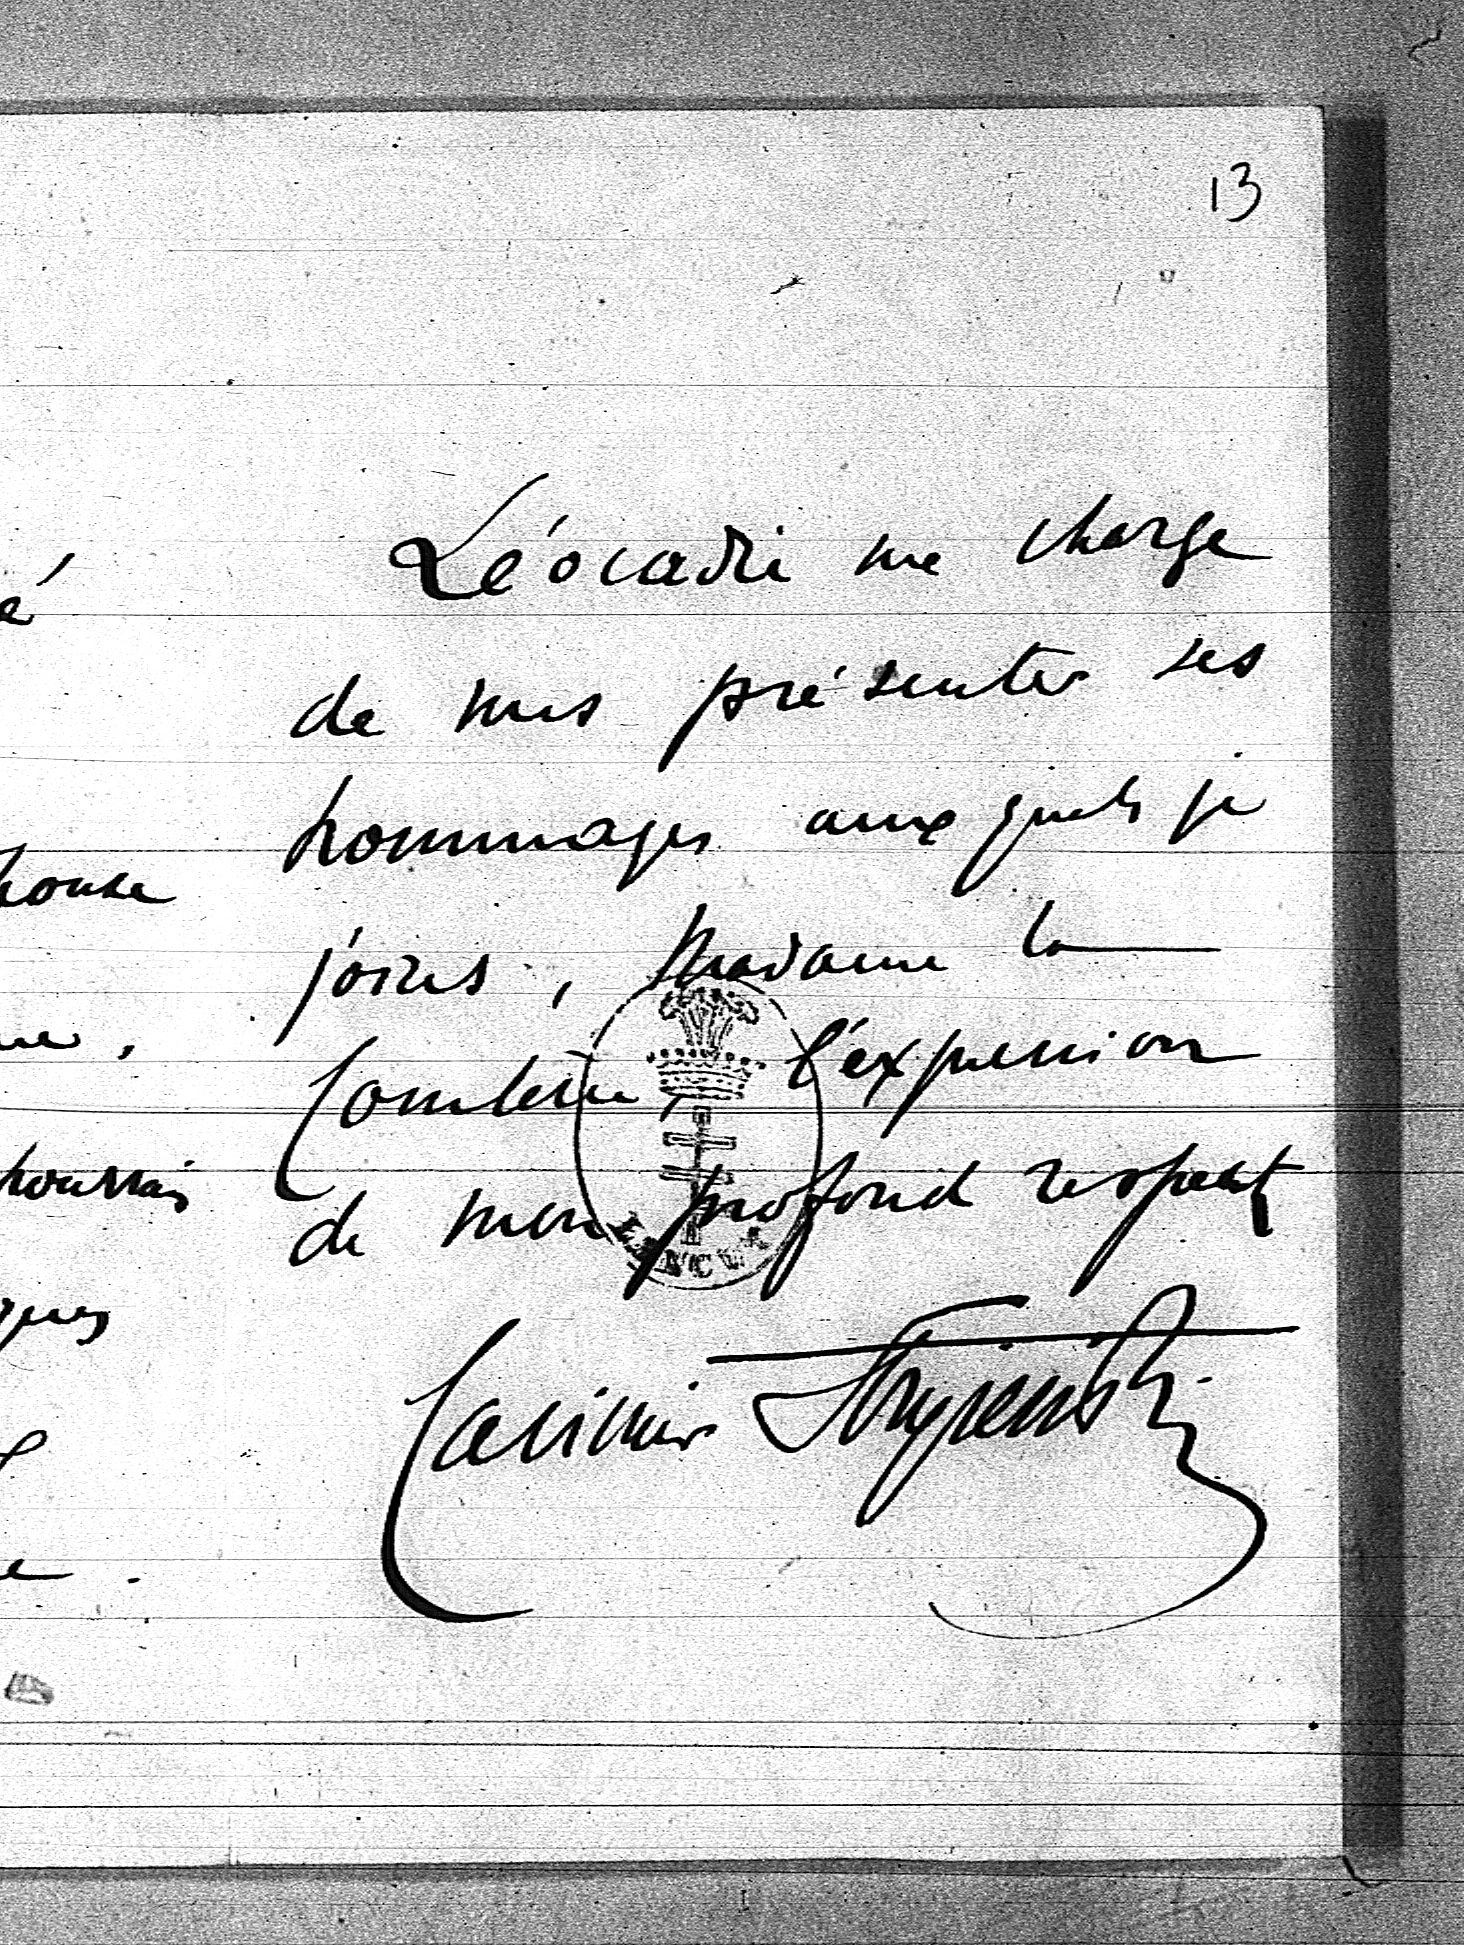 13
Léocadie me charge
de vous présenter ses
hommages auxquels je
joins, Madame la
Comtesse, l'expression
de mon profond respect
Casimir Stryienski
é
ponse
me,
pourrais
ques
e.